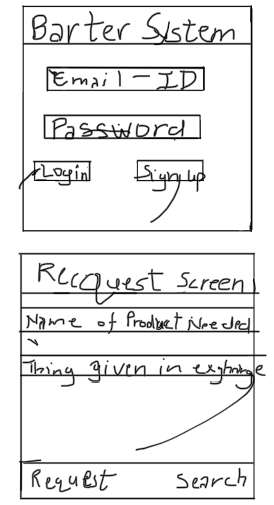 Barter System
Email-ID
Password
Login Sign up
Recquest Screen
Name of Product Needed
Thing given in exghange
Request Search